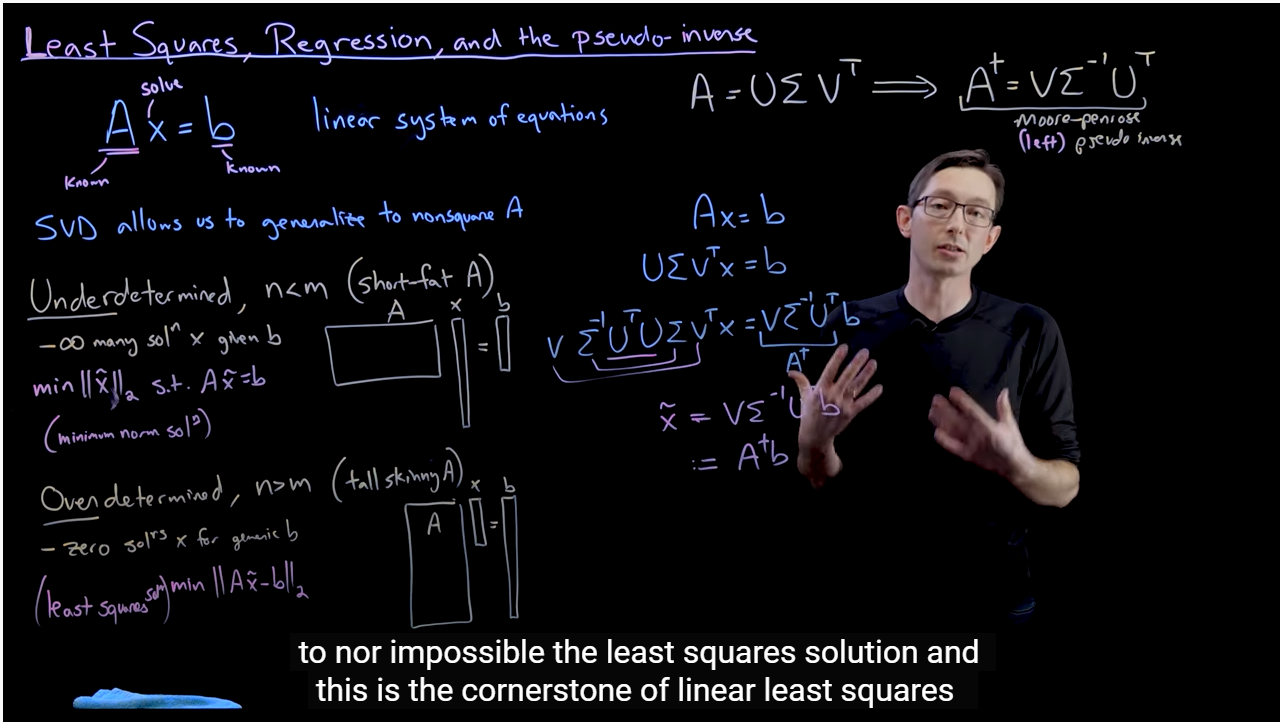 Least Squares, Regression, and the pseudo-inverse
solve
A x = b
known
known
linear system of equations
SVD allows us to generalize to nonsquare A
Underdetermined, n<m (short-fat A)
A x = b
-∞ many solⁿ x given b
min ||x̃||₂ s.t. Ax̃=b
(minimum norm solⁿ)
Overdetermined, n>m (tall skinny A)
A x = b
- zero solⁿˢ x for generic b
(least squares solⁿ) min ||Ax̃-b||₂
A = UΣVᵀ ⟹ A† = VΣ⁻¹Uᵀ
Moore-penrose
(left) pseudo inverse
Ax = b
UΣVᵀx = b
V Σ⁻¹UᵀUΣVᵀx = VΣ⁻¹Uᵀb
A†
x̃ = VΣ⁻¹Uᵀb
:= A†b
to nor impossible the least squares solution and
this is the cornerstone of linear least squares